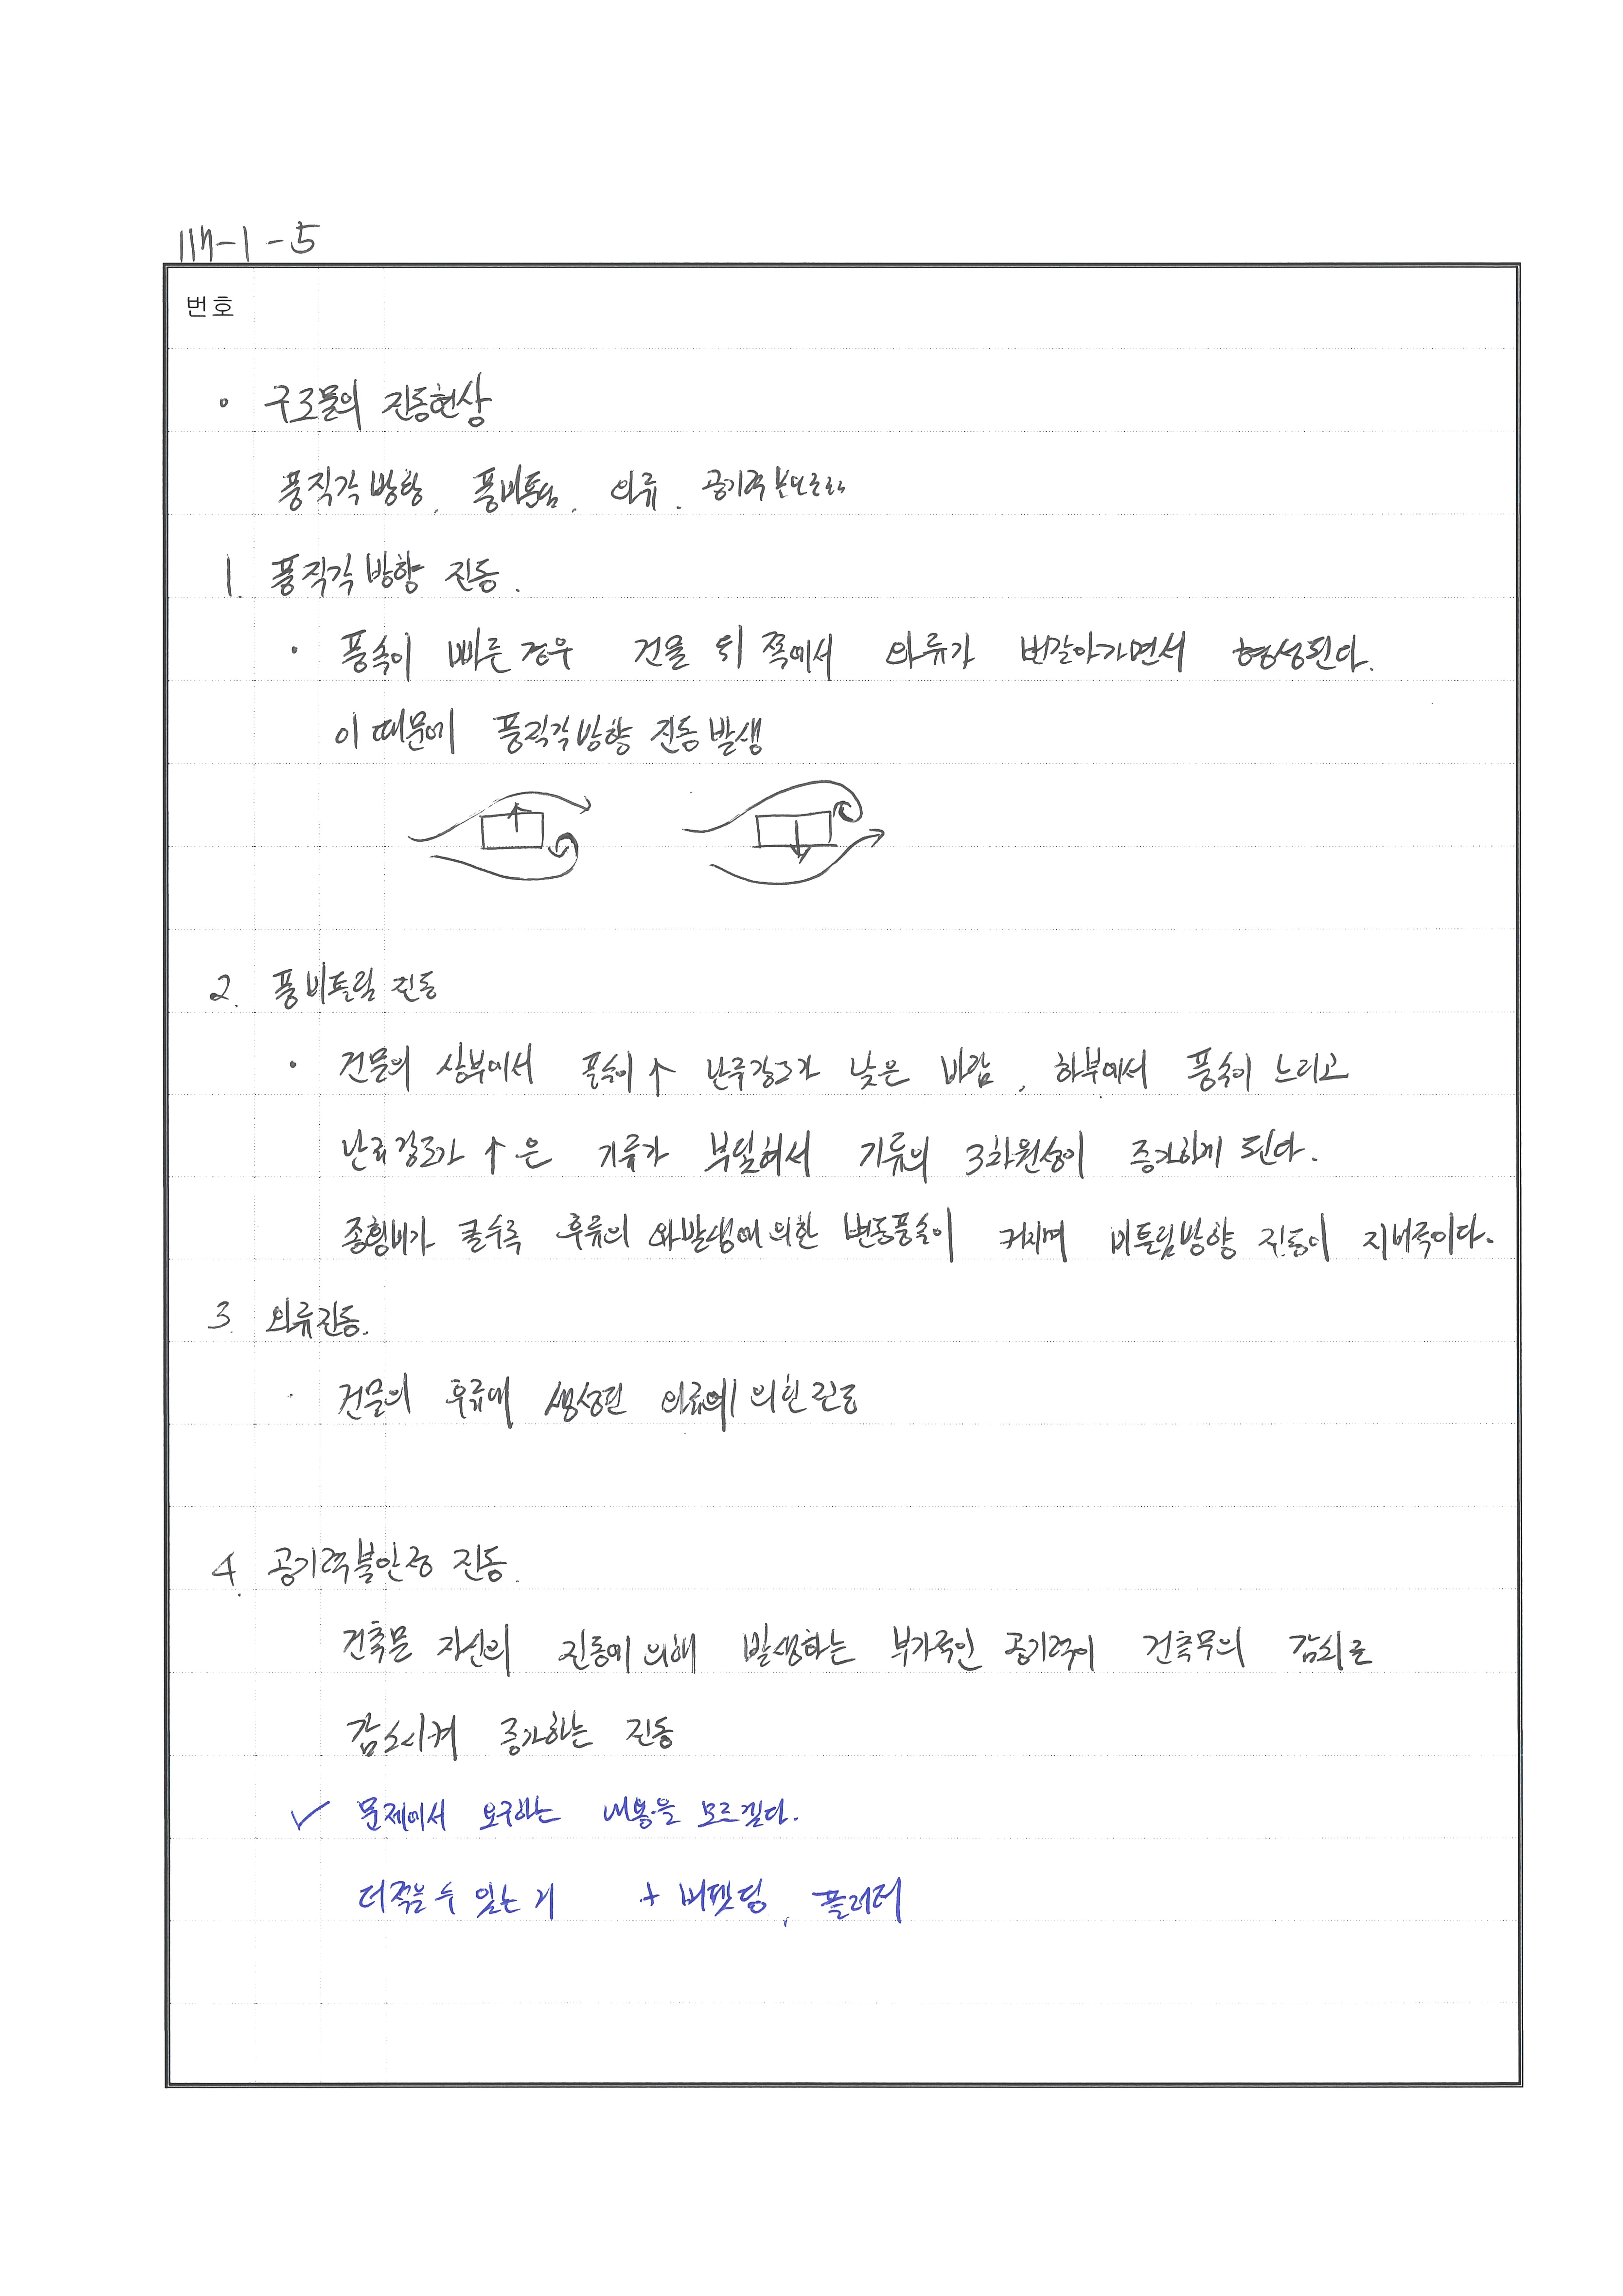 117-1-5
번호
• 구조물의 진동현상
풍직각방향, 풍비틀림, 와류, 공기력불안정
1. 풍직각방향 진동.
• 풍속이 빠른경우 건물 뒤쪽에서 와류가 번갈아가면서 형성된다.
이 때문에 풍직각방향 진동발생
2. 풍비틀림 진동
• 건물의 상부에서 풍속이 ↑ 난류강도가 낮은 바람, 하부에서 풍속이 느리고
난류강도가 ↑은 기류가 부딪혀서 기류의 3차원성이 증가하게 된다.
종횡비가 클수록 후류의 와발생에 의한 변동풍속이 커지며 비틀림방향 진동이 지배적이다.
3. 와류진동.
• 건물의 후류에 생성된 와류에 의한 진동
4. 공기력불안정 진동.
건축물 자신의 진동에 의해 발생하는 부가적인 공기력이 건축무의 감쇠를
감소시켜 증가하는 진동
✓ 문제에서 요구하는 내용을 모르겠다.
더 적을 수 있는 거 + 버펫팅, 플러터